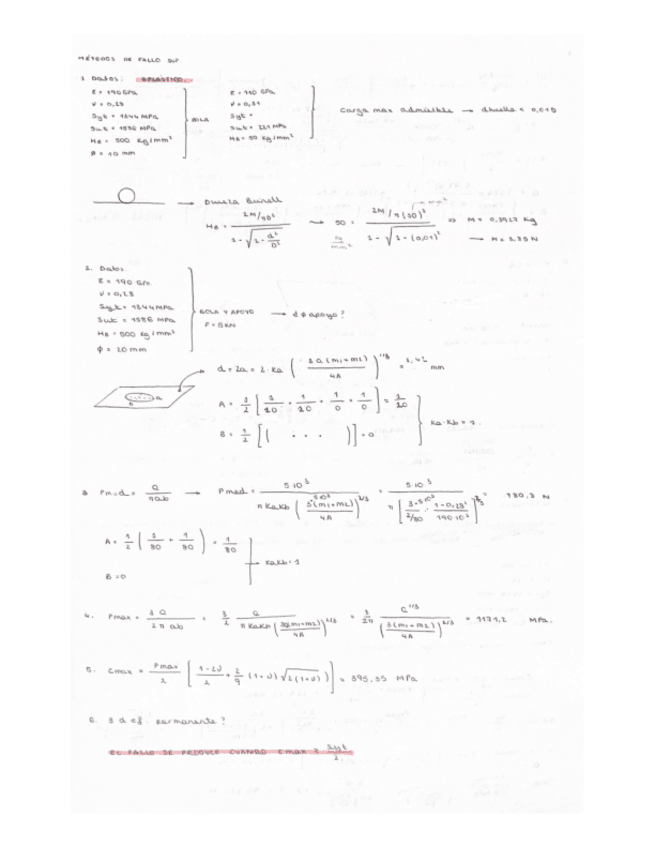 MÉTODOS DE FALLO SUP.
1 Datos:
E = 190 GPa
ν = 0,28
Syt = 1344 MPa
Sut = 1586 MPa
HB = 500 Kg/mm²
Ø = 10 mm
BOLA
E = 110 GPa
ν = 0,31
Syt =
Sut = 221 MPa
HB = 50 Kg/mm²
Carga max admisible → dhuella < 0,01D
→ Dureza Brinell
HB = (2M/πD²) / (1 - √(1 - d²/D²)) → 50 = (2M/π(10)²) / (1 - √(1 - (0,01)²)) ⇒ M = 0,3927 Kg
Kg/mm²
→ M = 3,85 N
2. Datos.
E = 190 GPa
ν = 0,28
Syt = 1344 MPa
Sut = 1586 MPa
HB = 500 Kg/mm²
Ø = 20 mm
BOLA Y APOYO → d Ø apoyo?
F = 5 KN
d = 2a = 2·Ka (3Q(m1+m2)/4A)^1/3 = mm
A = 1/2 [1/10 + 1/10 + 1/0 + 1/0] = 1/10
B = 1/2 [( ... )] = 0
Ka = Kb = 1.
3 Pmed = Q/πab → Pmed = 5·10³ / (π KaKb (3·5·10³(m1+m2)/4A)^2/3) = N
A = 1/2 (1/80 + 1/80) = 1/80
→ KaKb = 1
B = 0
4. Pmax = 3Q/2πab = 3/2 Q/(π KaKb (3Q(m1+m2)/4A)^2/3) = 3/2π Q^1/3/((3(m1+m2)/4A)^2/3) = 1171,2 MPa.
5. τmax = Pmax/2 [(1-2ν)/2 + 2/9 (1+ν) √(2(1+ν))] = 395,35 MPa
6. ∃ def. permanente?
EL FALLO SE PRODUCE CUANDO τmax ≥ Syt/2.